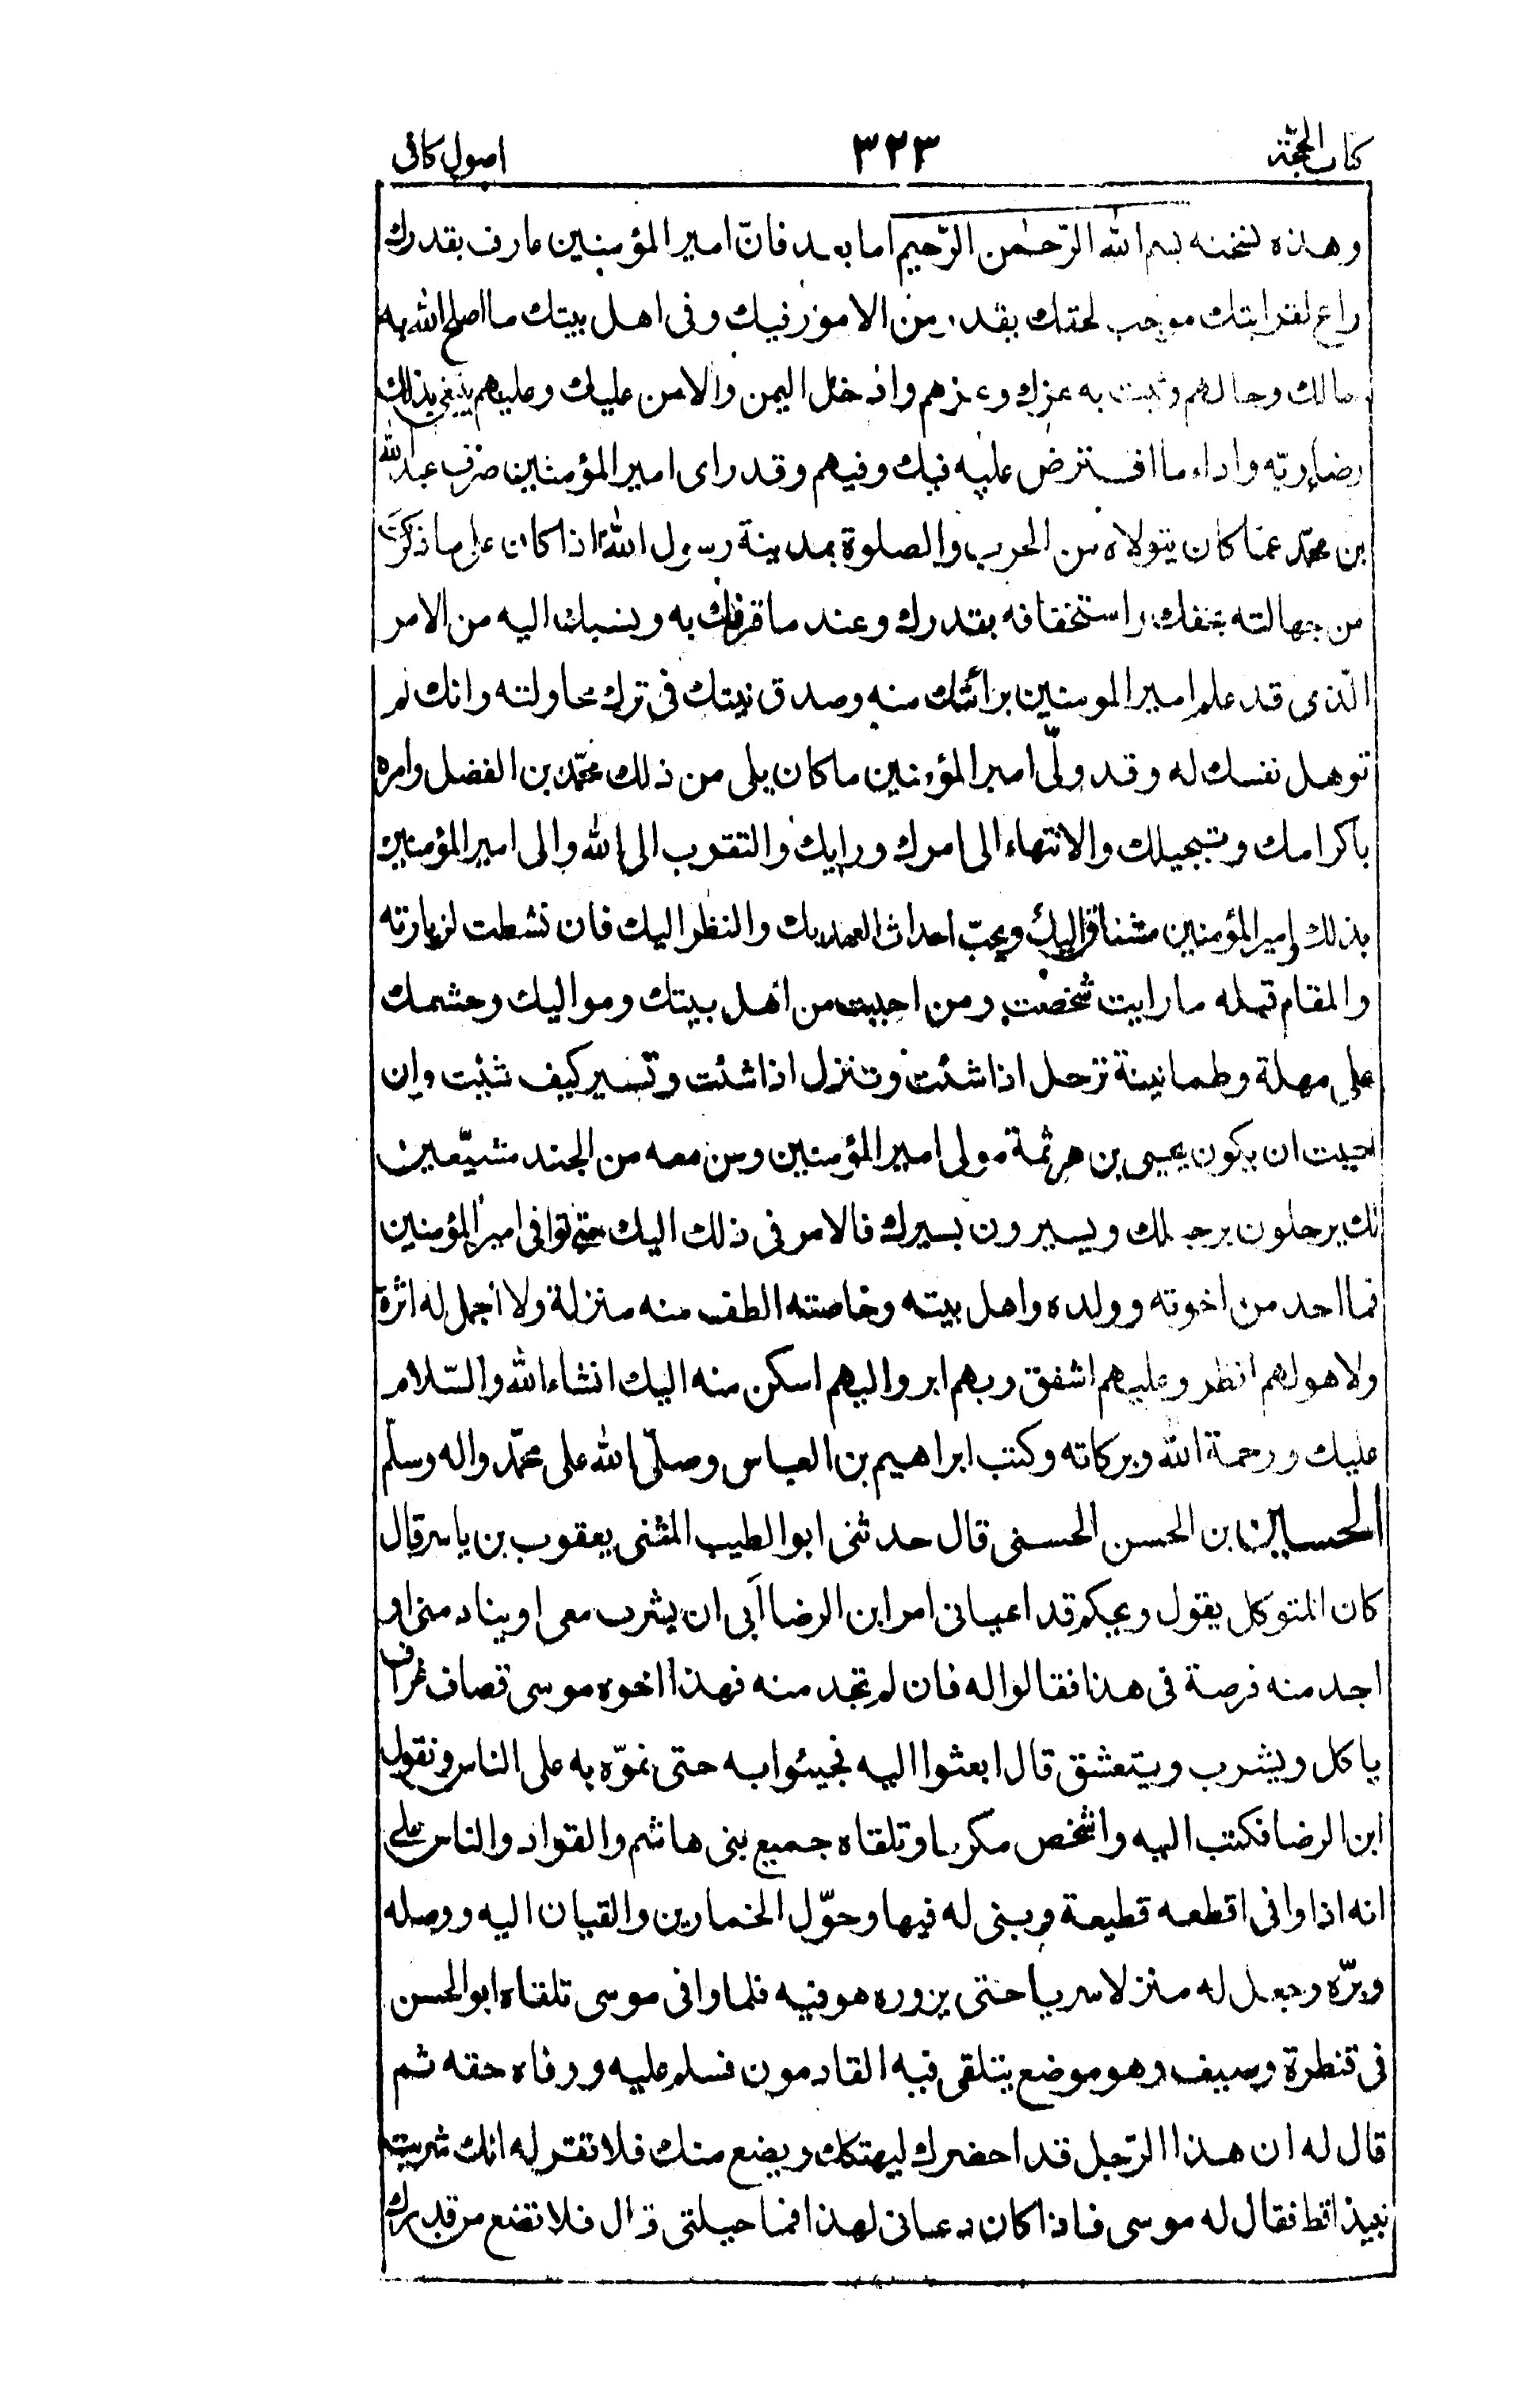 كتاب الحجّة ٣٢٣ اصول كافى
وهذه نسخته بسم الله الرّحمٰن الرّحيم اما بعد فانّ امير المؤمنين عارف بقدرك
راع لقرابتك موجب لحقك يقدر من الامور فيك وفى اهل بيتك ما اصلح الله به
حالك وحالهم وثبت به عزك وعزهم وادخل اليمن والامن عليك وعليهم يبتغى بذلك
رضا ربّه واداء ما افترض عليه فيك وفيهم وقد راى امير المؤمنين صرف عبد الله
بن محمّد عمّا كان يتولاه من الحرب والصلوة بمدينة رسول الله اذا كان على ما ذكرت
من جهالته بحقك واستخفافه بقدرك وعند ما قرفك به ونسبك اليه من الامر
الّذى قد علم امير المومنين برائتك منه وصدق نيتك فى ترك محاولته وانك لم
توهل نفسك له وقد ولّى امير المؤمنين ما كان يلى من ذلك محمّد بن الفضل وامره
باكرامك وتبجيلك والانتهاء الى امرك ورايك والتقرب الى الله والى امير المؤمنين
بذلك وامير المؤمنين مشتاق اليك ويحبّ احداث العهد بك والنظر اليك فان نشطت لزيارته
والمقام قبله ما رايت شخصت ومن احببت من اهل بيتك ومواليك وحشمك
على مهلة وطمانينة ترحل اذا شئت وتنزل اذا شئت وتسير كيف شئت وان
احببت ان يكون يحيى بن هرثمة مولى امير المؤمنين ومن معه من الجند مشيّعين
لك يرحلون برحيلك ويسيرون بسيرك فالامر فى ذلك اليك حتى توافى امير المؤمنين
فما احد من اخوته وولده واهل بيته وخاصته الطف منه منزلة ولا احمل له اثرة
ولا هو لهم انظر وعليهم اشفق وبهم ابر واليهم اسكن منه اليك انشاء الله والسّلام
عليك ورحمة الله وبركاته وكتب ابراهيم بن العباس وصلّى الله على محمّد واله وسلّم
الحسين بن الحسن الحسنى قال حدثنى ابو الطيب المثنى يعقوب بن ياسر قال
كان المتوكل يقول ويحكم قد اعيانى امر ابن الرضا اَبى ان يشرب معى او ينادمنى او
اجد منه فرصة فى هذا فقالوا له فان لم تجد منه فهذا اخوه موسى قصاف عزاف
ياكل ويشرب ويتعشق قال ابعثوا اليه فجيئوا به حتى نموّه به على الناس ونقول
ابن الرضا فكتب اليه واشخص مكرما وتلقاه جميع بنى هاشم والقواد والناس على
انه اذا وافى اقطعه قطيعة وبنى له فيها وحوّل الخمارين والقيان اليه ووصله
وبرّه وجعل له منزلا سريا حتى يزوره هو فيه فلما وافى موسى تلقاه ابو الحسن
فى قنطرة وصيف وهو موضع يتلقى فيه القادمون فسلم عليه ووفاه حقه ثم
قال له ان هذا الرّجل قد احضرك ليهتكك ويضع منك فلا تقر له انك شربت
نبيذا قط فقال له موسى فاذا كان دعانى لهذا فما حيلتى قال فلا تضع من قدرك